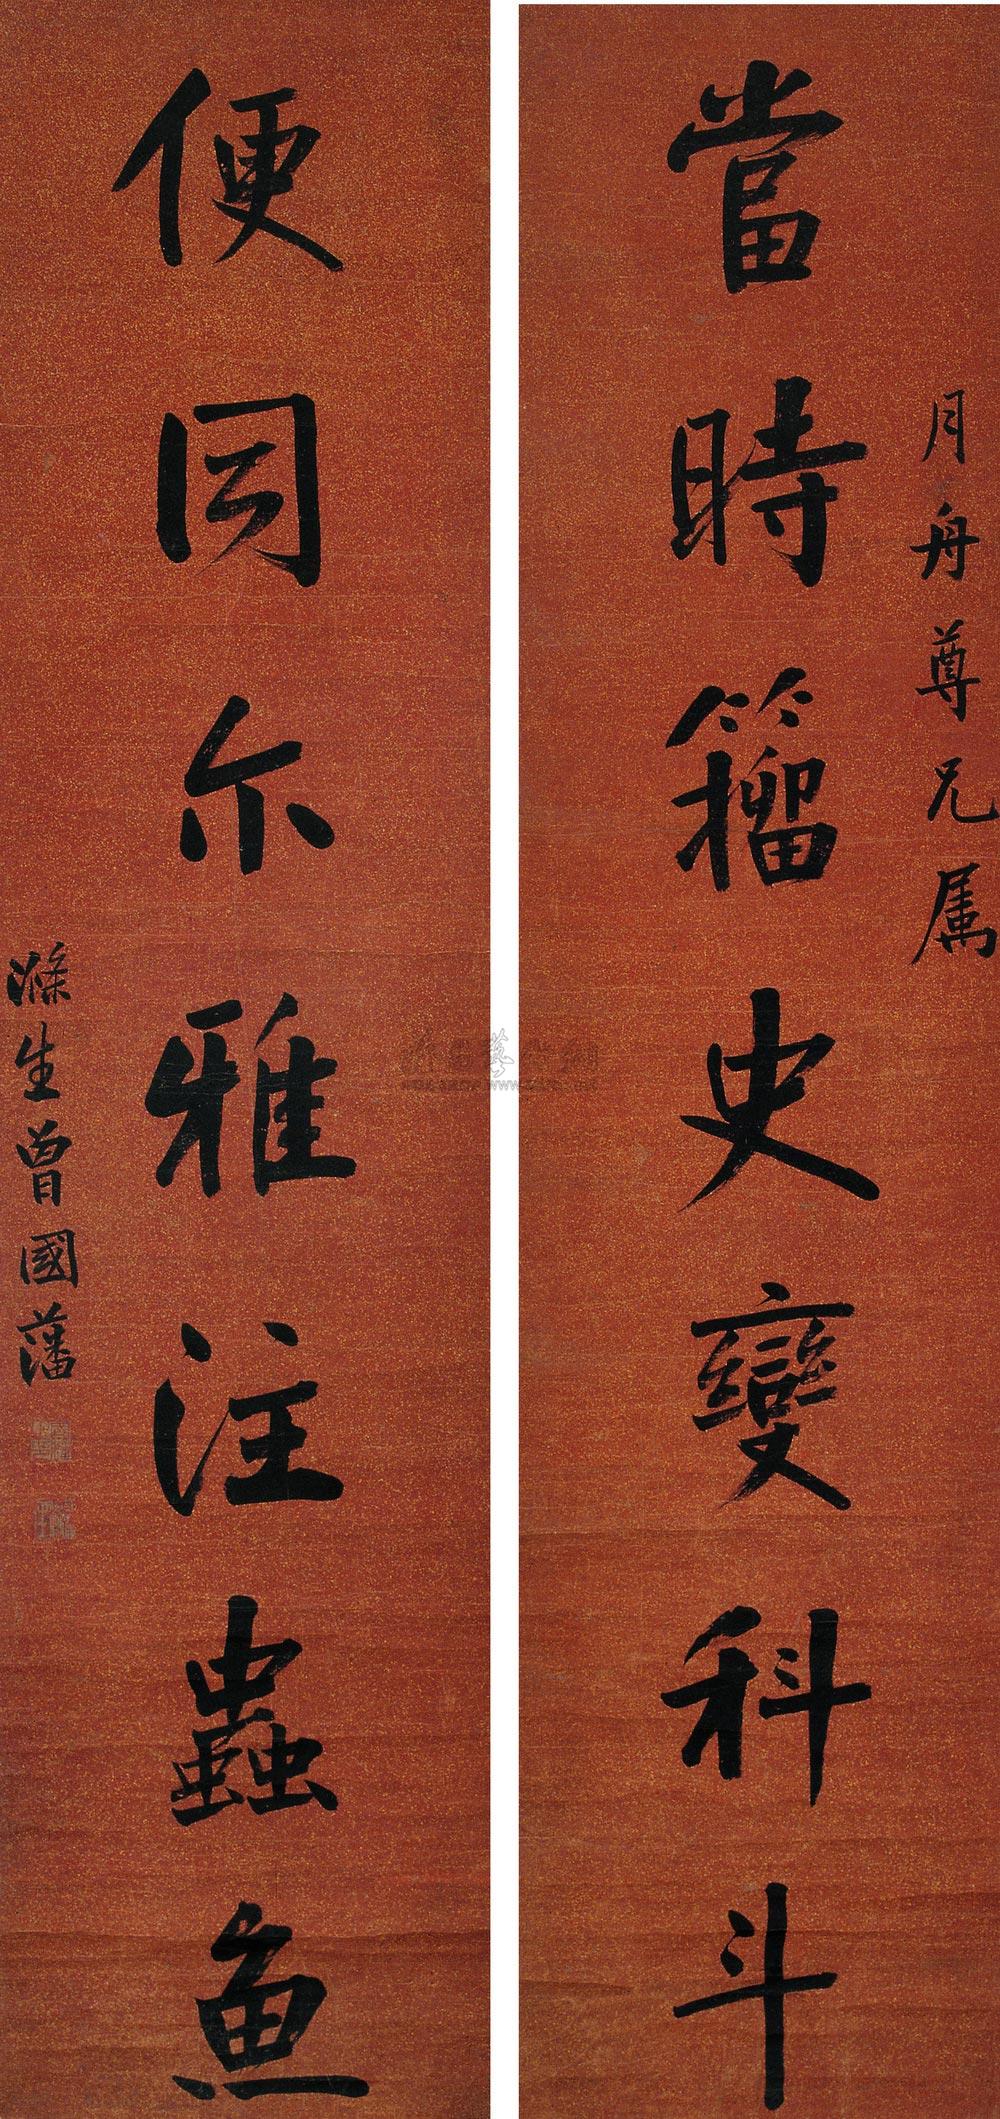 月舟尊兄属
當時籀史變科斗
便同尒雅注蟲魚
滌生曾國藩